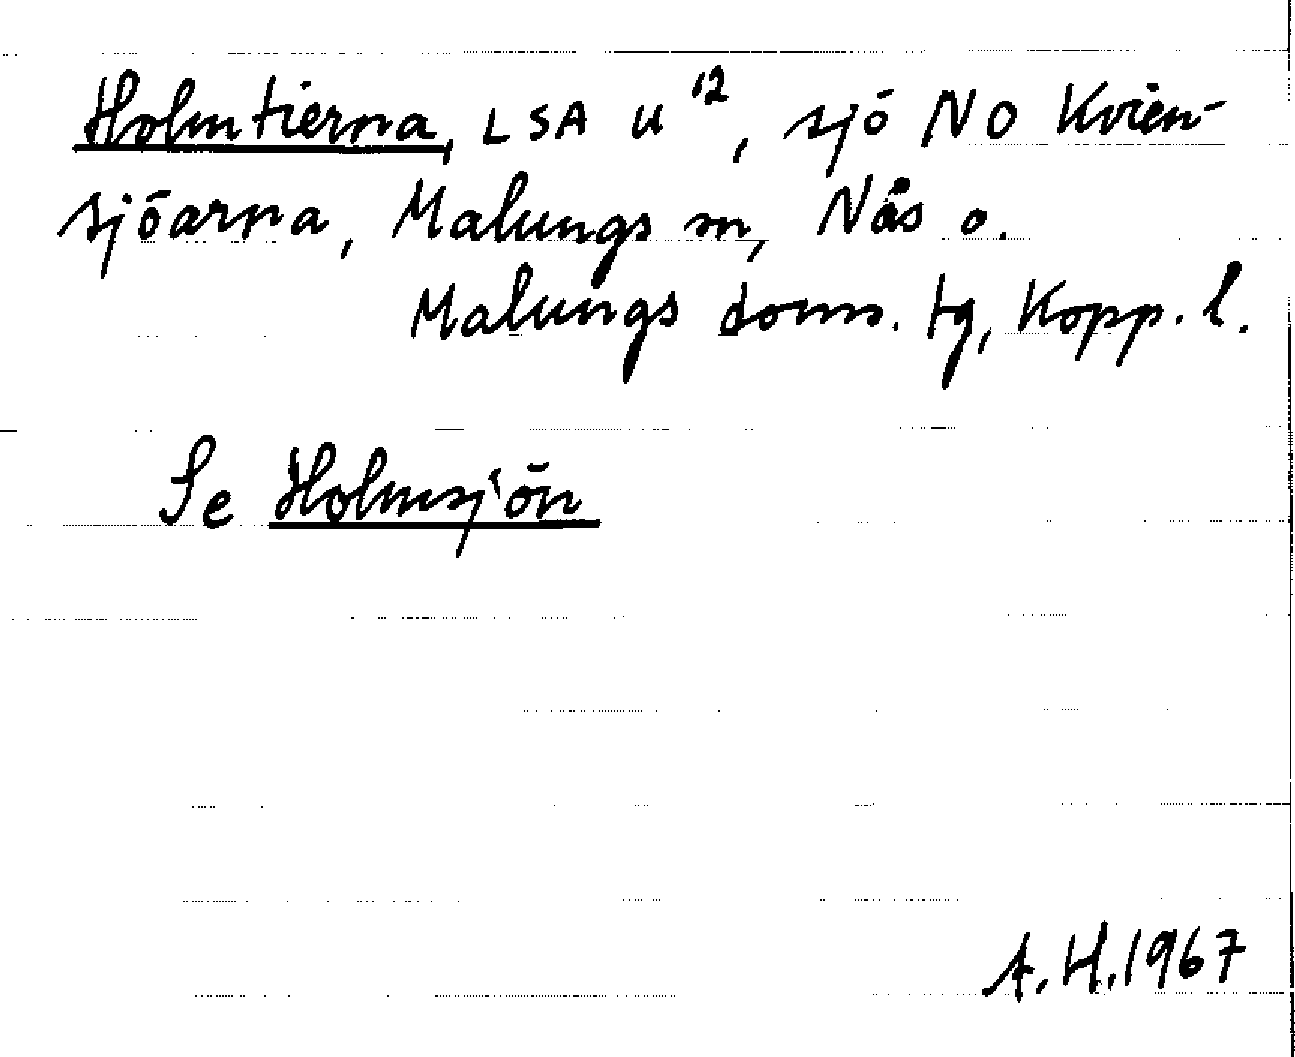 Holmtierna, LSA U 12, sjö NO Kvien-
sjöarna, Malungs sn, Nås o.
Malungs doms. tg, Kopp. l.
Se Holmsjön
A.H. 1967